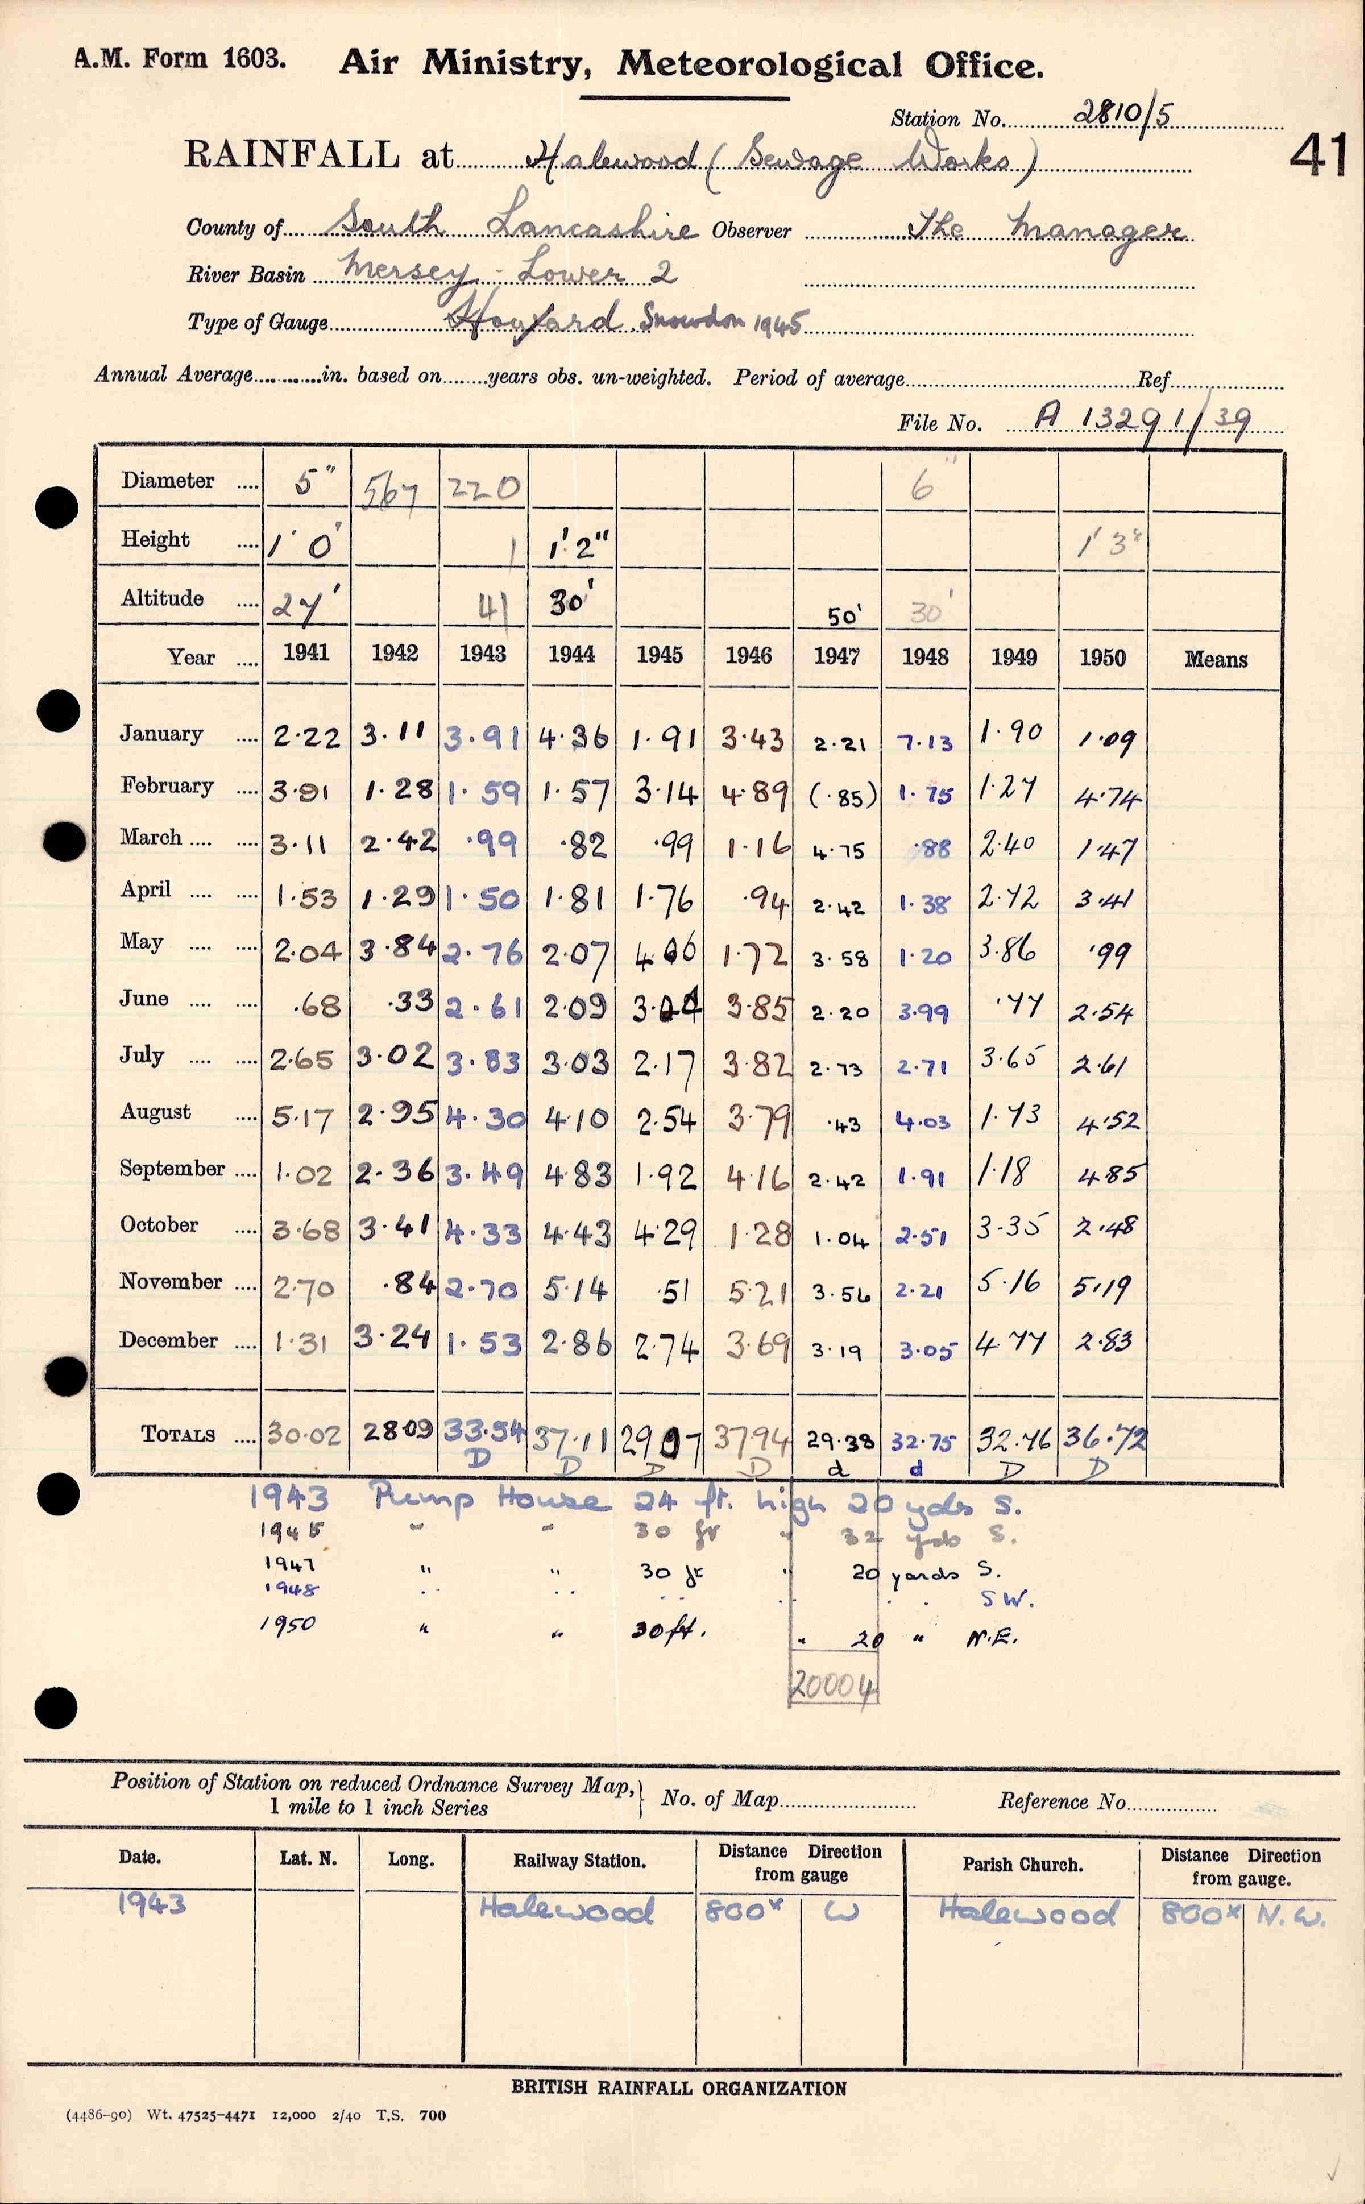 A.M. Form 1603. Air Ministry, Meteorological Office.
Station No. 2810/5
41
RAINFALL at Halewood (Sewage Works)
County of South Lancashire Observer The Manager
River Basin Mersey - Lower 2
Type of Gauge Snowdon 1945
Annual Average............in. based on........years obs. un-weighted. Period of average............Ref............
File No. A 13291/39
Diameter .... 5" 567 220 6"
Height .... 1' 0" 1 1' 2" 1' 3"
Altitude .... 27' 41 30' 50' 30'
Year .... 1941 1942 1943 1944 1945 1946 1947 1948 1949 1950 Means
January .... 2.22 3.11 3.91 4.36 1.91 3.43 2.21 7.13 1.90 1.09
February .... 3.91 1.28 1.59 1.57 3.14 4.89 (.85) 1.75 1.27 4.74
March .... .... 3.11 2.42 .99 .82 .99 1.16 4.75 .88 2.40 1.47
April .... .... 1.53 1.29 1.50 1.81 1.76 .94 2.42 1.38 2.72 3.41
May .... .... 2.04 3.84 2.76 2.07 4.06 1.72 3.58 1.20 3.86 .99
June .... .... .68 .33 2.61 2.09 3.04 3.85 2.20 3.99 .77 2.54
July .... .... 2.65 3.02 3.83 3.03 2.17 3.82 2.73 2.71 3.65 2.61
August .... 5.17 2.95 4.30 4.10 2.54 3.79 .43 4.03 1.73 4.52
September .... 1.02 2.36 3.49 4.83 1.92 4.16 2.42 1.91 1.18 4.85
October .... 3.68 3.41 4.33 4.43 4.29 1.28 1.04 2.51 3.35 2.48
November .... 2.70 .84 2.70 5.14 .51 5.21 3.56 2.21 5.16 5.19
December .... 1.31 3.24 1.53 2.86 2.74 3.69 3.19 3.05 4.77 2.83
TOTALS .... 30.02 28.09 33.54 37.11 29.07 37.94 29.38 32.75 32.76 36.72
D D D D d d D D
1943 Pump House 24 ft. high 20 yds S.
1945 " " 30 ft " 32 yds S.
1947 " " 30 ft " 20 yards S.
1948 " " " " " " SW.
1950 " " 30 ft. " 20 " N.E.
20004
Position of Station on reduced Ordnance Survey Map, } No. of Map............ Reference No............
1 mile to 1 inch Series
Date. Lat. N. Long. Railway Station. Distance Direction from gauge Parish Church. Distance Direction from gauge.
1943 Halewood 800x W Halewood 800x N.W.
BRITISH RAINFALL ORGANIZATION
(4486-90) Wt. 47525-4471 12,000 2/40 T.S. 700